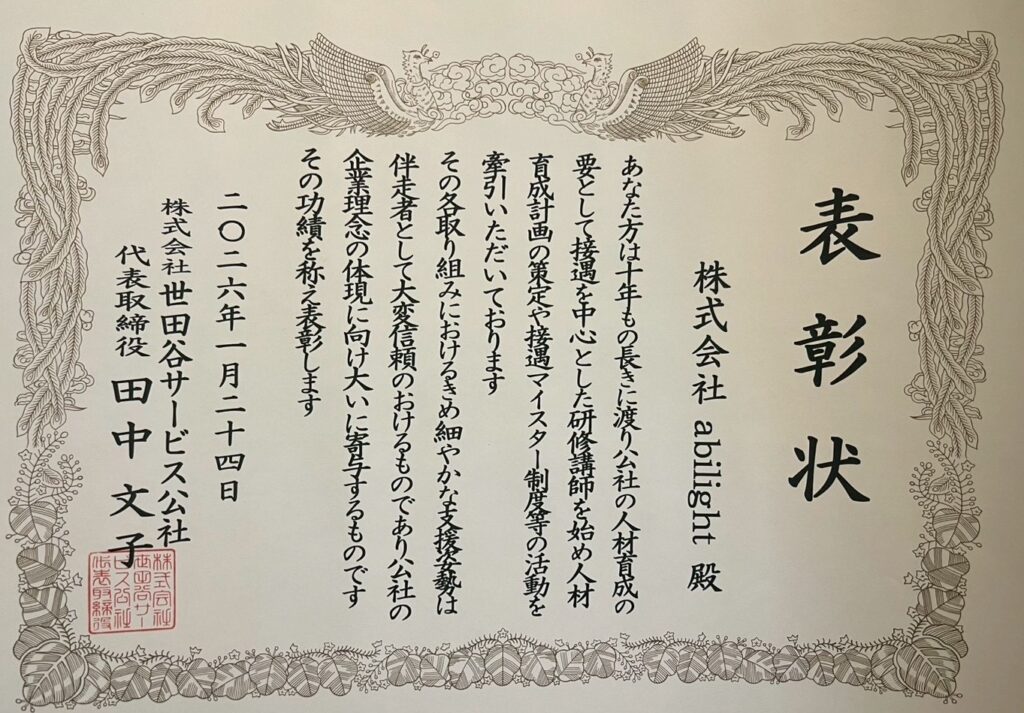 表彰状
株式会社 abilight 殿
あなた方は十年もの長きに渡り公社の人材育成の
要として接遇を中心とした研修講師を始め人材
育成計画の策定や接遇マイスター制度等の活動を
牽引いただいております
その各取り組みにおけるきめ細やかな支援姿勢は
伴走者として大変信頼のおけるものであり公社の
企業理念の体現に向け大いに寄与するものです
その功績を称え表彰します
二〇二六年一月二十四日
株式会社世田谷サービス公社
代表取締役 田中文子
株式会社
世田谷サー
ビス公社
代表取締役